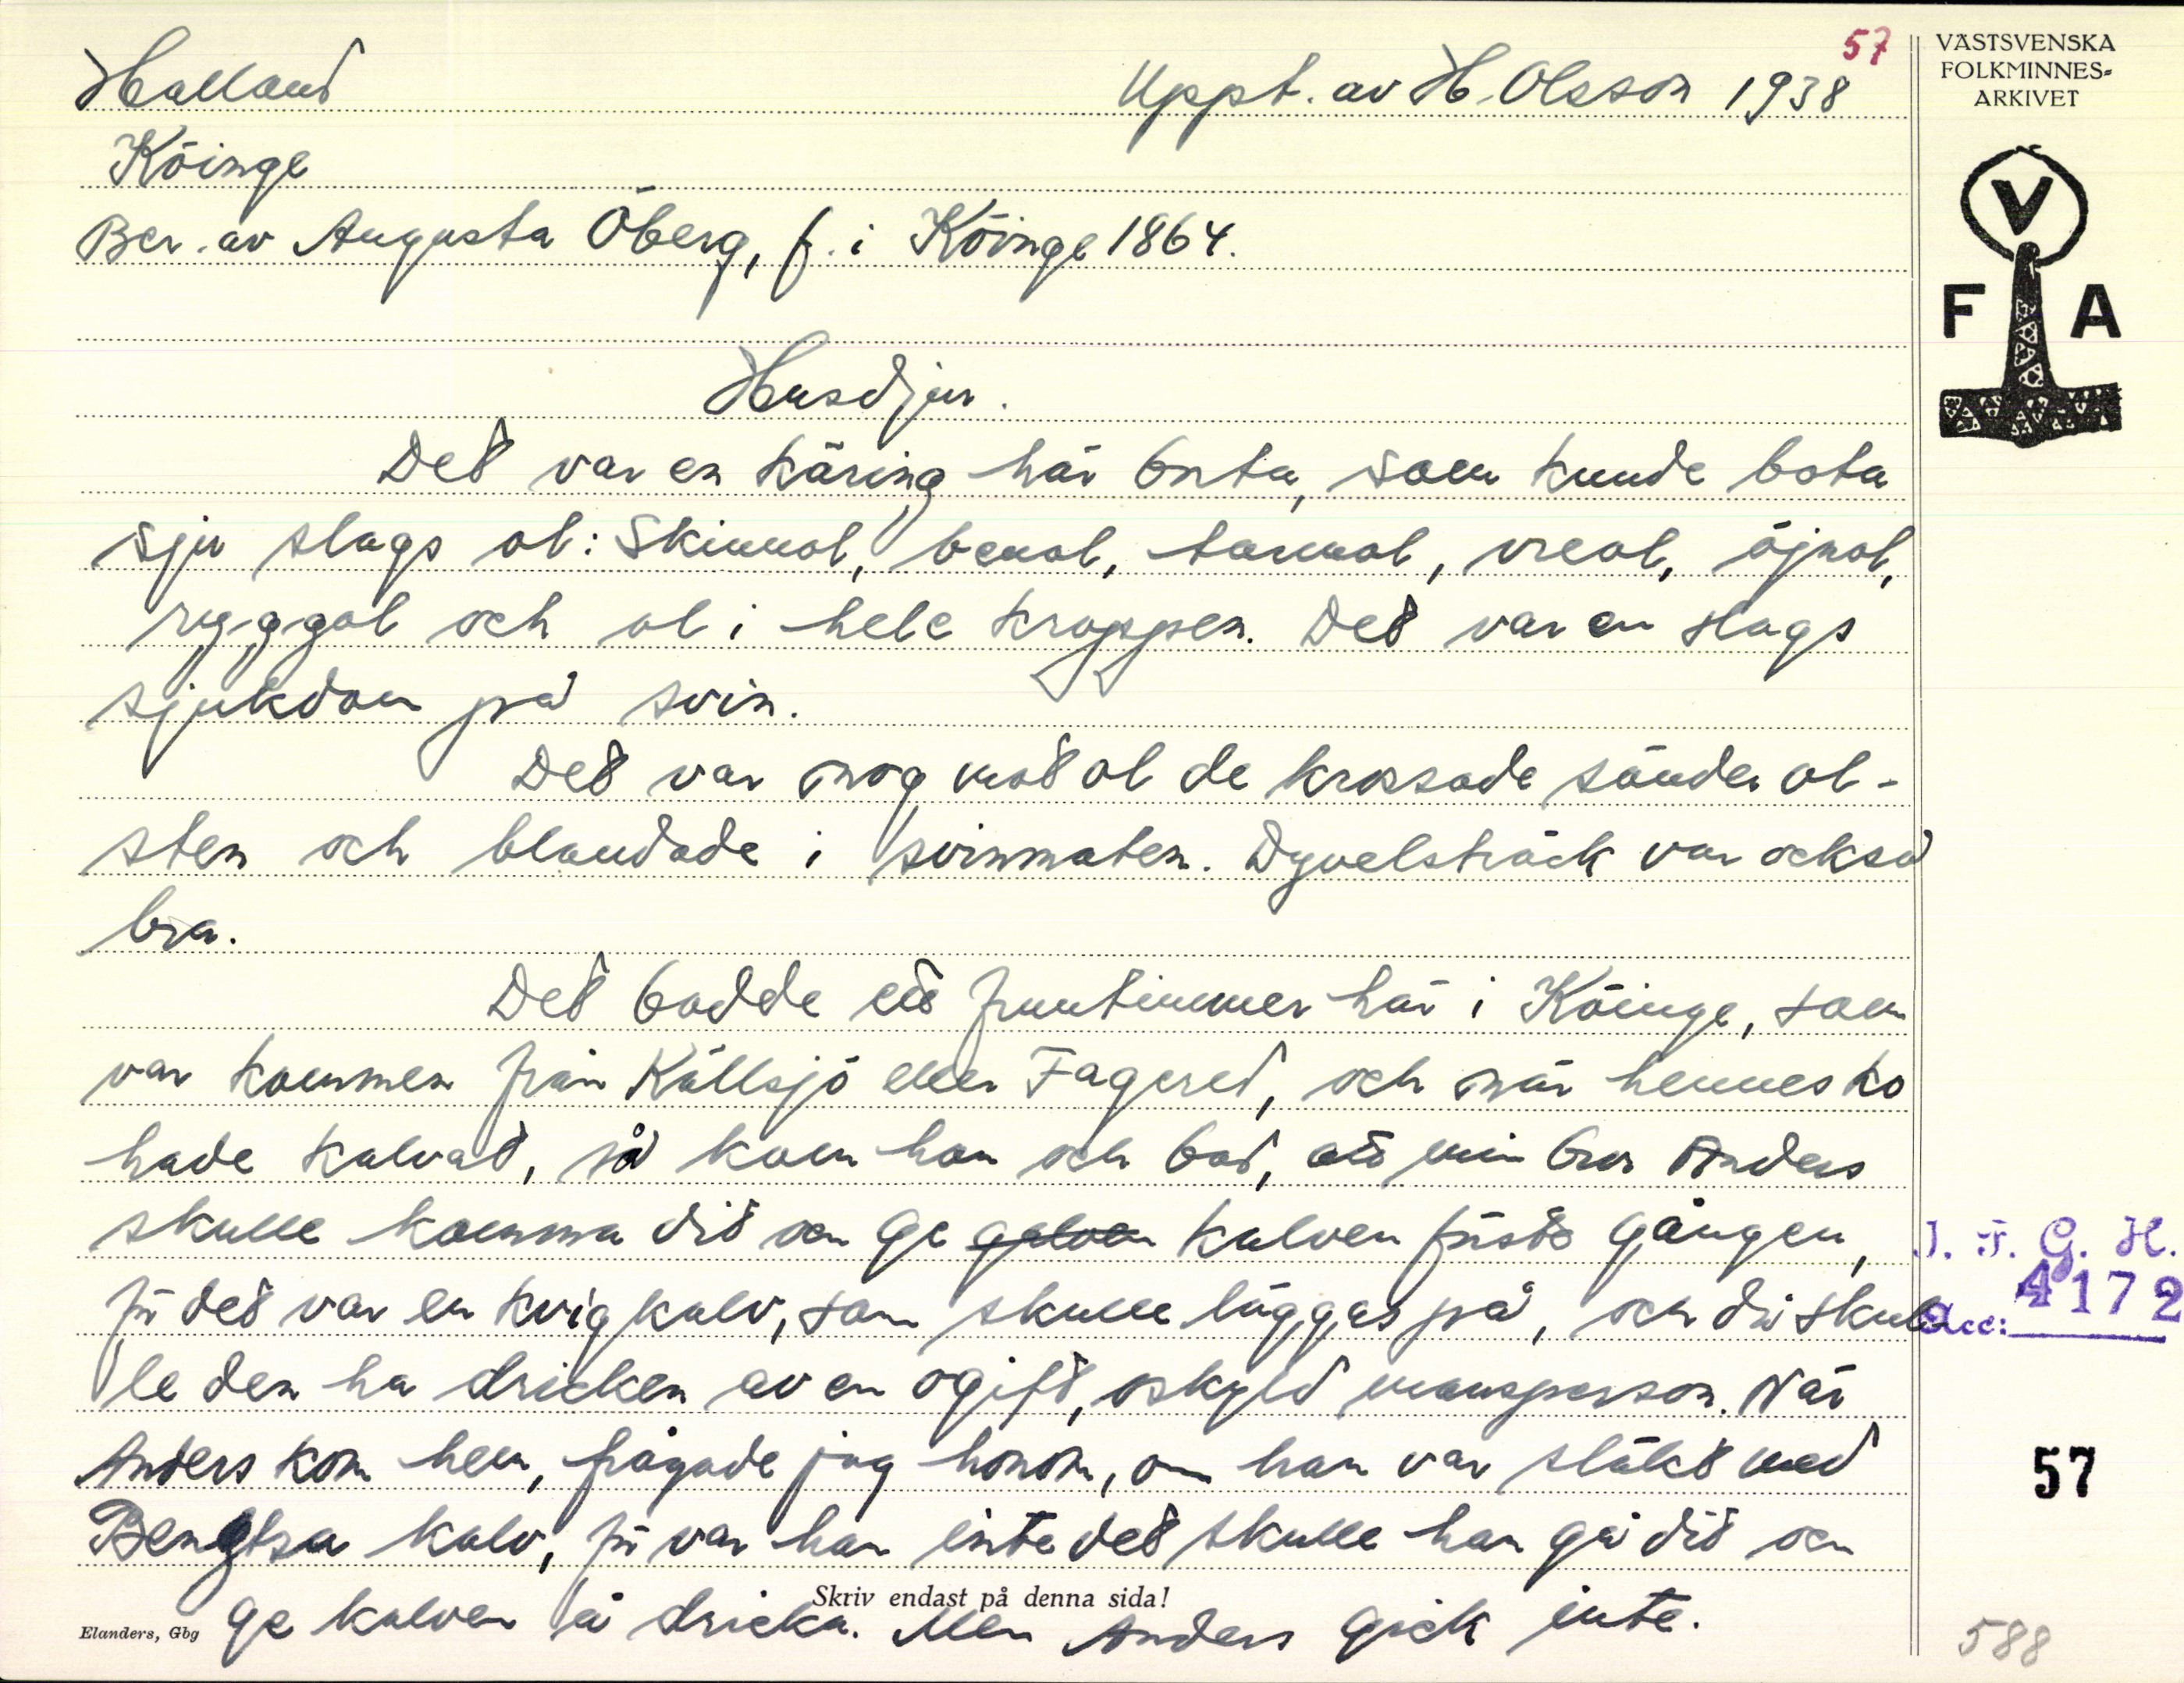 57
Halland Uppt. av H. Olsson 1938
Köinge
Ber. av Augusta Öberg, f. i Köinge 1864.
Husdjur.
Det var en käring här borta, som kunde bota
sju slags ol: Skinnol, benol, tarmol, vreol, öjnol,
ryggol och ol i hele kroppen. Det var en slags
sjukdom på svin.
Det var nog mot ol de krossade sönder ol-
sten och blandade i svinmaten. Dyvelsträck var också
bra.
Det bodde ett fruntimmer här i Köinge, som
var kommen från Källsjö eller Fagered, och när hennes ko
hade kalvat, så kom hon och bad, att min bror Anders
skulle komma dit och ge galven kalven första gången,
för det var en kvigkalv, som skulle läggas på, och då skul-
le den ha dricken av en ogift, oskyld mansperson. När
Anders kom hem, frågade jag honom, om han var släkt med
Bengtsa kalv, för var han inte det skulle han gå dit och
ge kalven å dricka. Men Anders gick inte.
Skriv endast på denna sida!
Elanders, Gbg
VÄSTSVENSKA
FOLKMINNES-
ARKIVET
V
F A
I. F. G. H.
Acc: 4172
57
588